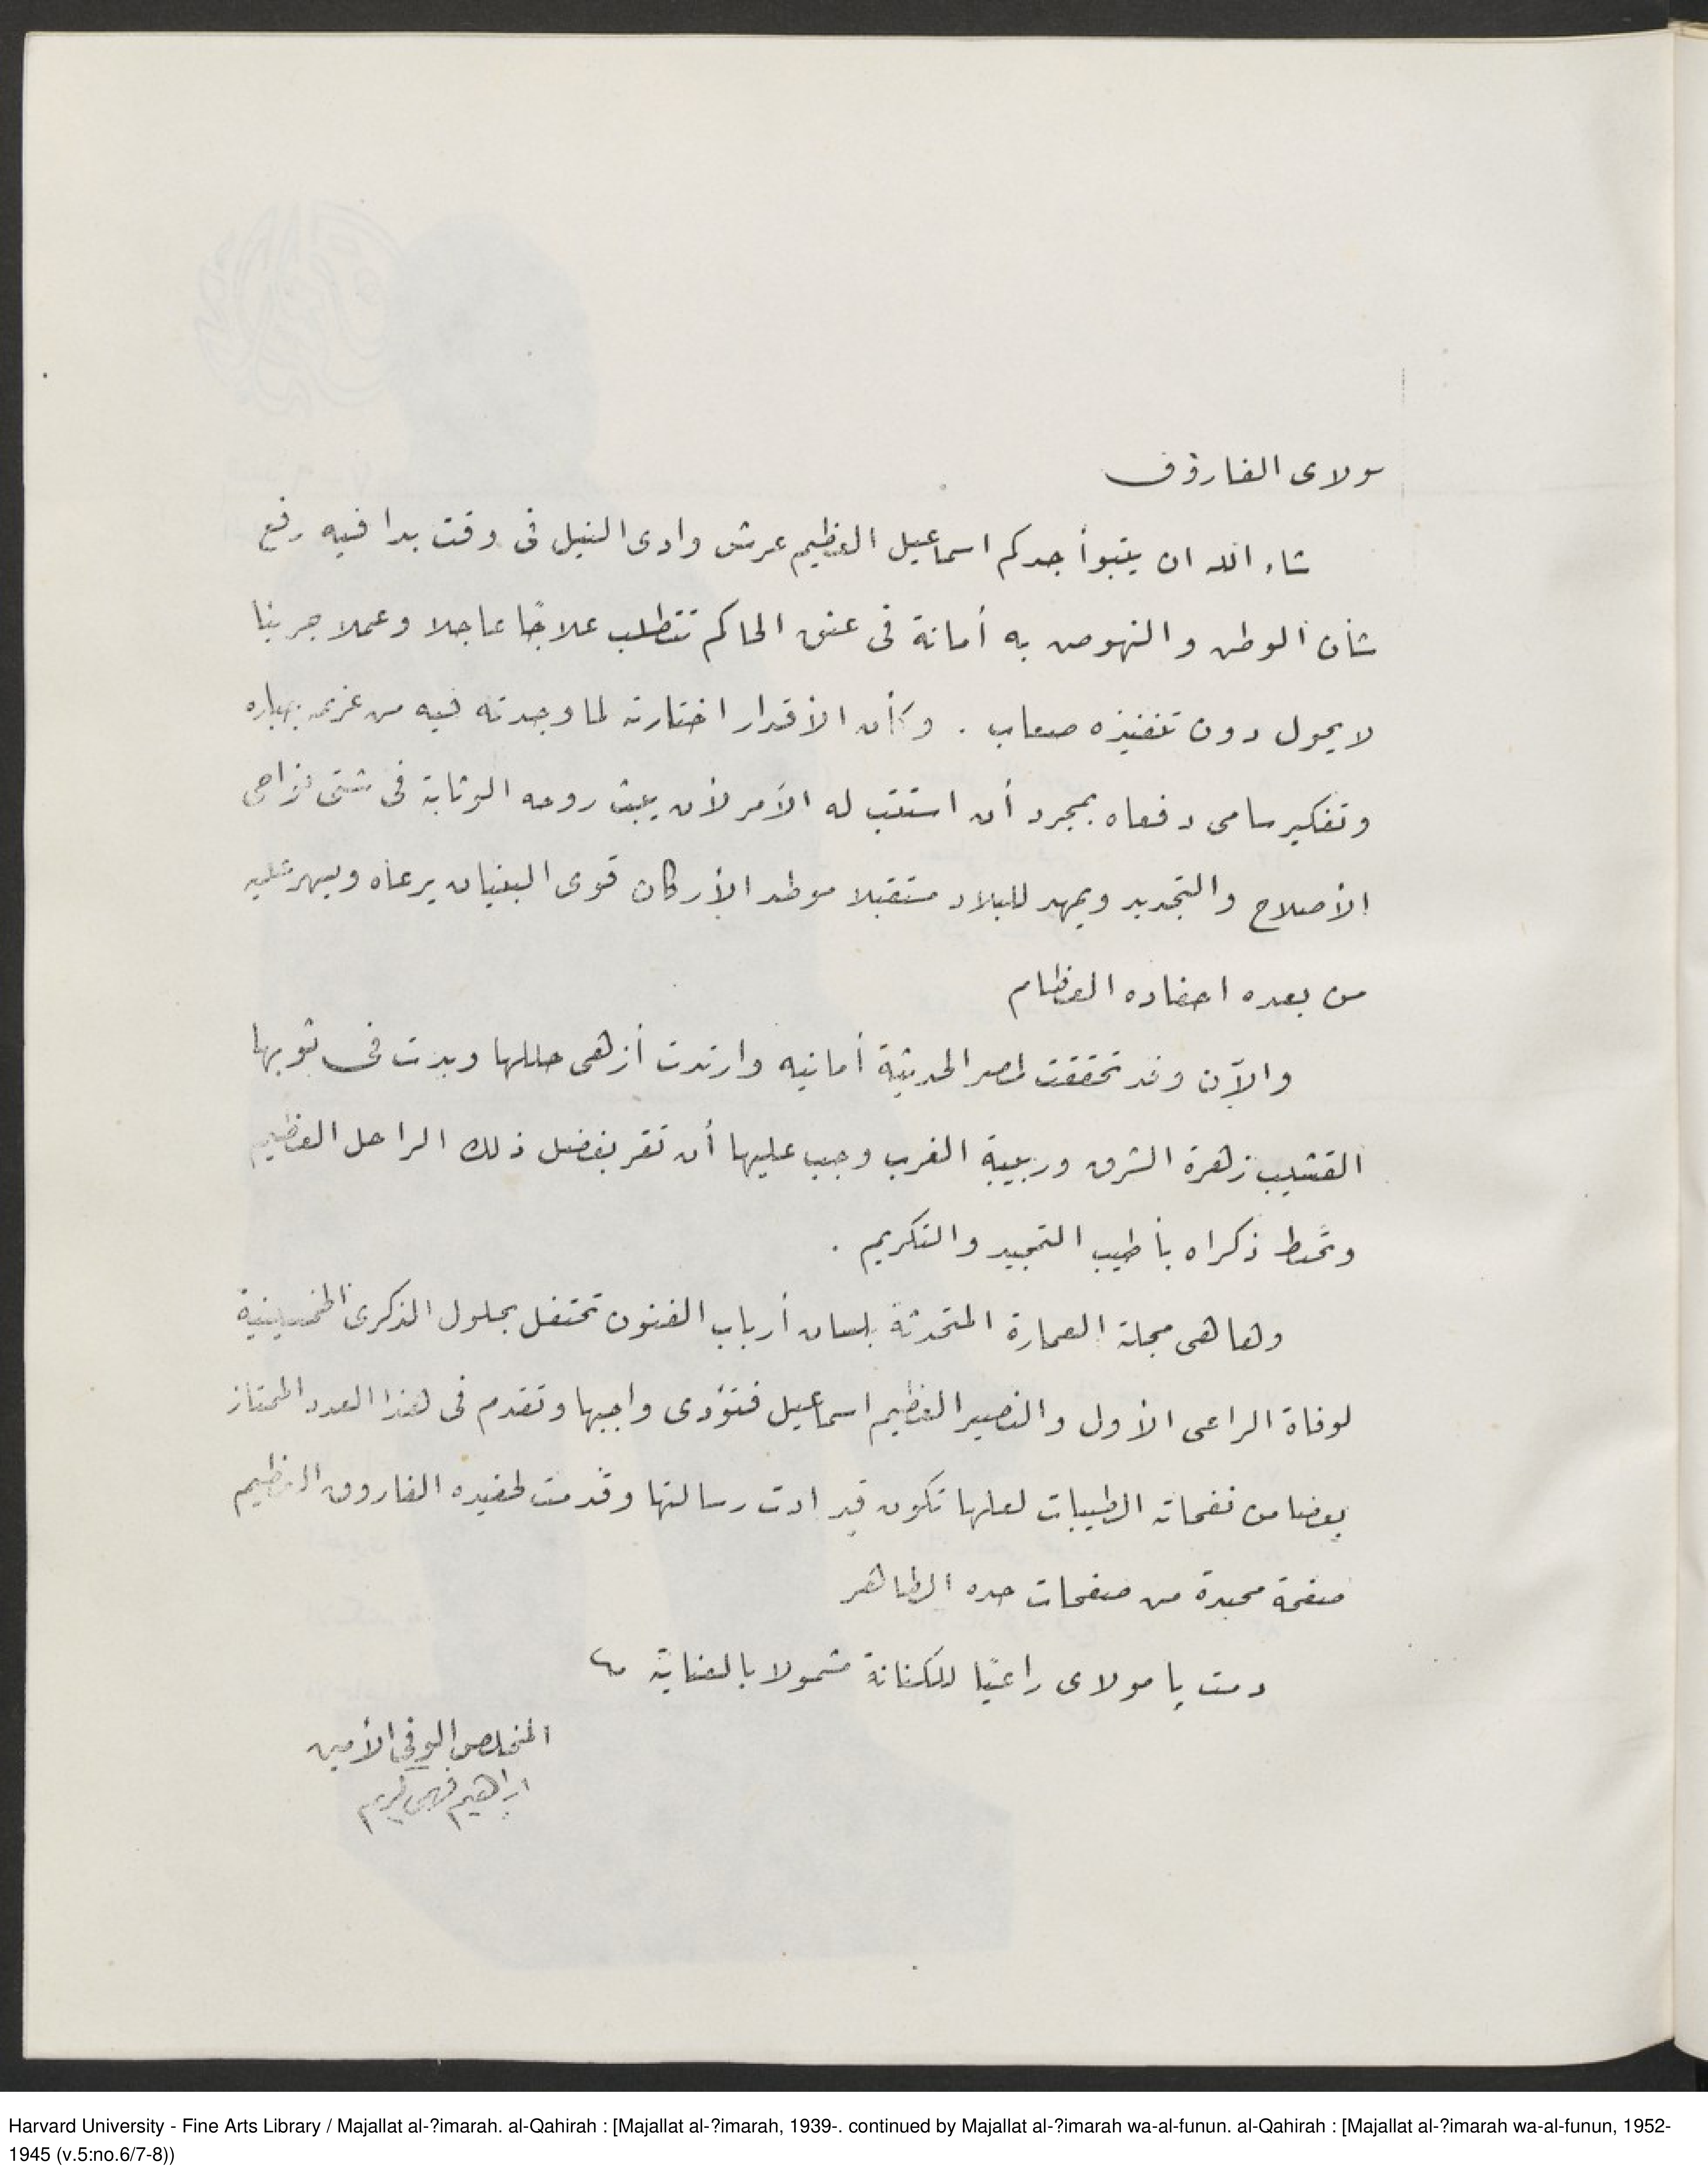 مولاى الفاروق
شاء الله ان يتبوأ جدكم اسماعيل العظيم عرش وادى النيل فى وقت بدا فيه رفع
شأن الوطن والنهوض به أمانة فى عنق الحاكم تتطلب علاجًا عاجلا وعملا جريئا
لا يحول دون تنفيذه صعاب . وكأن الأقدار اختارته لما وجدته فيه من عزيمه جباره
وتفكير سامى دفعاه بمجرد أن استتب له الأمر لأن يبث روحه الوثابة فى شتى نواحى
الأصلاح والتجديد ويمهد للبلاد مستقبلا موطد الأركان قوى البنيان يرعاه ويسهر عليه
من بعده احفاده العظام
والآن وقد تحققت لمصر الحديثة أمانيه وارتدت أزهى حللها وبدت فى ثوبها
القشيب زهرة الشرق وربيبة الغرب وجب عليها أن تقر بفضل ذلك الراحل العظيم
وتحيط ذكراه بأطيب التمجيد والتكريم .
وها هى مجلة العمارة المتحدثة بلسان أرباب الفنون تحتفل بحلول الذكرى الخمسينية
لوفاة الراعى الأول والنصير العظيم اسماعيل فتؤدى واجبها وتقدم فى هذا العدد الممتاز
بعضا من نفحاته الطيبات لعلها تكون قد ادت رسالتها وقدمت لحفيده الفاروق العظيم
صفحة مجيدة من صفحات جده الطاهر
دمت يا مولاى راعيًا للكنانة مشمولا بالعناية
المخلص الوفى الأمين
ابراهيم فهمى كريم
Harvard University - Fine Arts Library / Majallat al-?imarah. al-Qahirah : [Majallat al-?imarah, 1939-. continued by Majallat al-?imarah wa-al-funun. al-Qahirah : [Majallat al-?imarah wa-al-funun, 1952-
1945 (v.5:no.6/7-8))